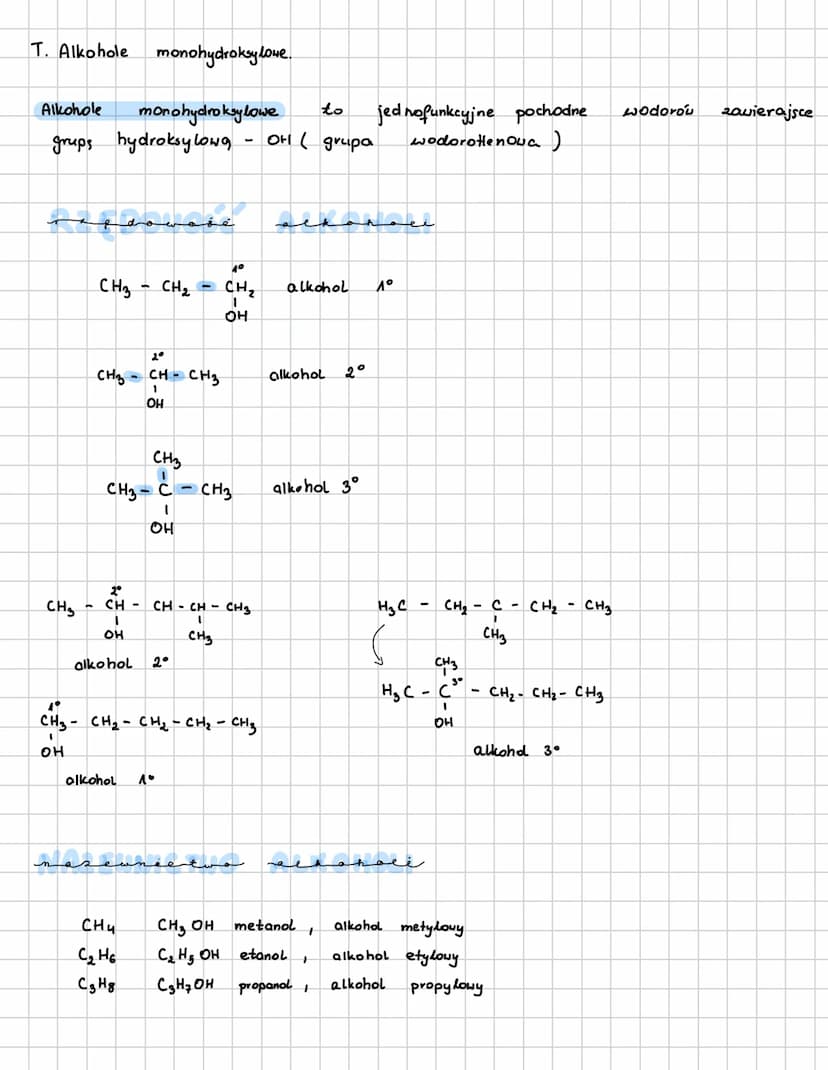 T. Alkohole monohydroksylowe.
Alkohole monohydroksylowe to jednofunkcyjne pochodne wodorów zawierajsce
grups hydroksylową - OH ( grupa wodorotlenowa )
RZĘDOWOŚĆ ALKOHOLI
rzędowość alkoholi
1°
CH3 - CH2 - CH2 alkohol 1°
OH
2°
CH3 - CH - CH3 alkohol 2°
OH
CH3
CH3 - C - CH3 alkohol 3°
OH
2°
CH3 - CH - CH - CH - CH3
OH CH3
alkohol 2°
1°
CH3 - CH2 - CH2 - CH2 - CH3
OH
alkohol 1°
H3C - CH2 - C - CH2 - CH3
CH3
CH3
H3C - C 3° - CH2 - CH2 - CH3
OH
alkohol 3°
NAZEWNICTWO ALKOHOLI
nazewnictwo alkoholi
CH4 CH3 OH metanol , alkohol metylowy
C2H6 C2H5 OH etanol , alkohol etylowy
C3H8 C3H7 OH propanol , alkohol propylowy